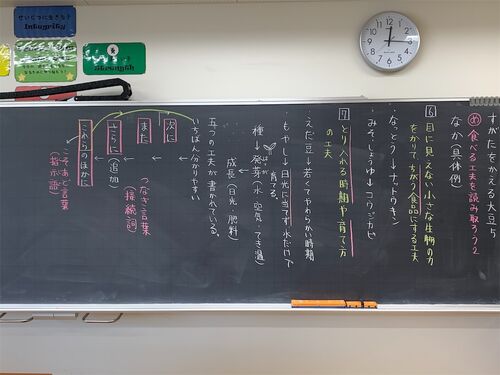 せいじつに生きる子
Integrity
Strength
すがたをかえる大豆 5
め 食べる工夫を読み取ろう 2
なか(具体例)
6 目に見えない小さな生物の力
をかりてちがう食品にする工夫
・なっとう→ナットウキン
・みそ、しょうゆ→コウジカビ
7 とり入れる時期や育て方
の工夫
・えだ豆→若くてやわらかい時期
・もやし→日光に当てず水だけで
育てる。
種→発芽(水 空気 てき温)
成長(日光 肥料)
五つの工夫が書かれている。
いちばん分かりやすい
次に
また
さらに(追加)
これらのほかに
つなぎ言葉
(接続詞)
こそあど言葉
(指示語)